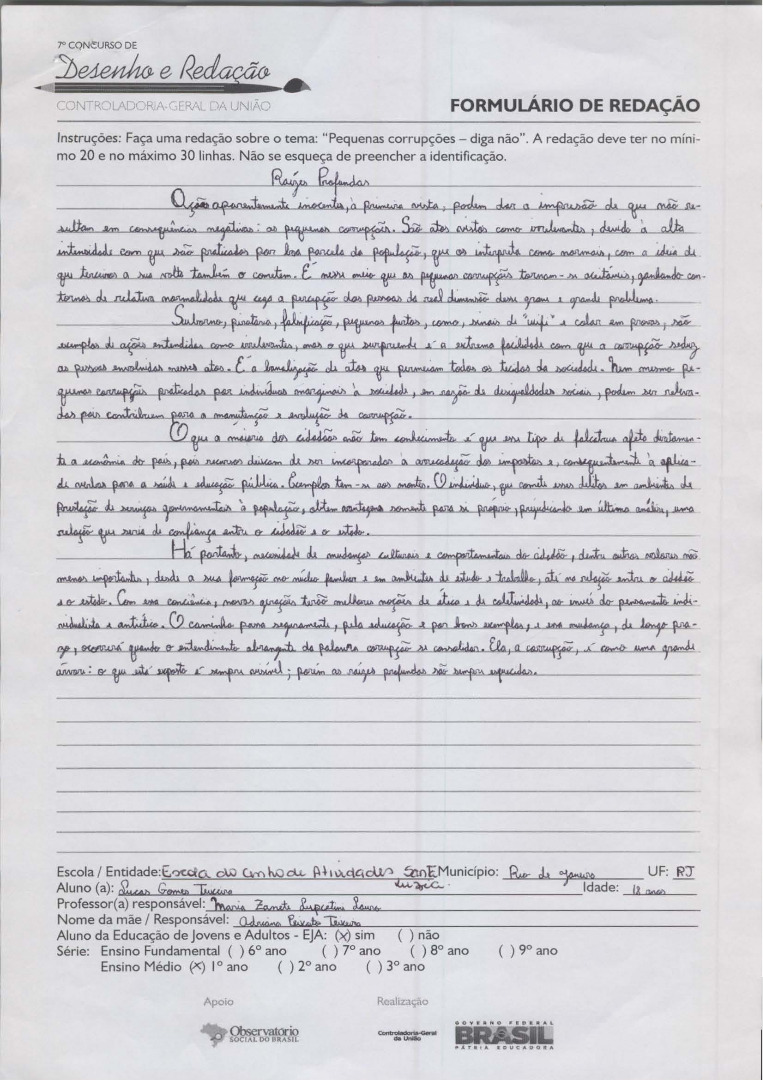 7º CONCURSO DE
Desenho e Redação
CONTROLADORIA-GERAL DA UNIÃO
FORMULÁRIO DE REDAÇÃO
Instruções: Faça uma redação sobre o tema: “Pequenas corrupções – diga não”. A redação deve ter no míni-
mo 20 e no máximo 30 linhas. Não se esqueça de preencher a identificação.
Raízes Profundas
Ação aparentemente inocentes, à primeira vista, podem dar a impressão de que não re-
sultam em consequências negativas: as pequenas corrupções. São atos vistos como irrelevantes, devido à alta
intensidade com que são praticados por boa parcela da população, que os interpreta como normais, com a ideia de
que terceiros a sua volta também o cometem. É nesse meio que as pequenas corrupções tornam-se aceitáveis, ganhando con-
tornos de relativa normalidade que cega a percepção das pessoas da real dimensão desse grave e grande problema.
Suborno, pirataria, falsificação, pequenos furtos, como, sinais de "wifi" e colar em provas, são
exemplos de ações entendidas como irrelevantes, mas o que surpreende é a extrema facilidade com que a corrupção seduz
as pessoas envolvidas nesses atos. É a banalização de atos que permeiam todos os tecidos da sociedade. Nem mesmo pe-
quenas corrupções praticadas por indivíduos marginais à sociedade, em razão de desigualdades sociais, podem ser releva-
das pois contribuem para a manutenção e evolução da corrupção.
O que a maioria dos cidadãos não tem conhecimento é que esse tipo de falcatrua afeta diretamen-
te a economia do país, pois recursos deixam de ser incorporados à arrecadação dos impostos e, consequentemente à aplica-
de verbas para a saúde e educação pública. Exemplos tem-se aos montes. O indivíduo, que comete esses delitos em ambientes de
prestação de serviços governamentais à população, obtem vantagens somente para si próprio, prejudicando em última análise, uma
relação que seria de confiança entre o cidadão e o estado.
Há portanto, necessidade de mudanças culturais e comportamentais do cidadão, dentre outros valores não
menos importantes, desde a sua formação no núcleo familiar e em ambientes de estudo e trabalho, até na relação entre o cidadão
e o estado. Com essa conciência, novas gerações terão melhores noções de ética e de coletividade, ao invés do pensamento indi-
vidualista e antiético. O caminho passa seguramente, pela educação e por bons exemplos, e essa mudança, de longo pra-
zo, ocorrerá quando o entendimento abrangente da palavra corrupção se consolidar. Ela, a corrupção, é como uma grande
árvore: o que está exposto é sempre visível; porém as raízes profundas são sempre esquecidas.
Escola / Entidade: Escola do cinho de Atividades Sant Luzia. Município: Rio de Janeiro UF: RJ
Aluno (a): Lucas Gomes Teixeira Idade: 18 anos
Professor(a) responsável: Maria Zaneti
Nome da mãe / Responsável: Adriana Peixoto Teixeira
Aluno da Educação de Jovens e Adultos - EJA: (x) sim ( ) não
Série: Ensino Fundamental ( ) 6º ano ( ) 7º ano ( ) 8º ano ( ) 9º ano
Ensino Médio (x) 1º ano ( ) 2º ano ( ) 3º ano
Apoio Realização
Observatório SOCIAL DO BRASIL
Controladoria-Geral da União
GOVERNO FEDERAL
BRASIL
PÁTRIA EDUCADORA